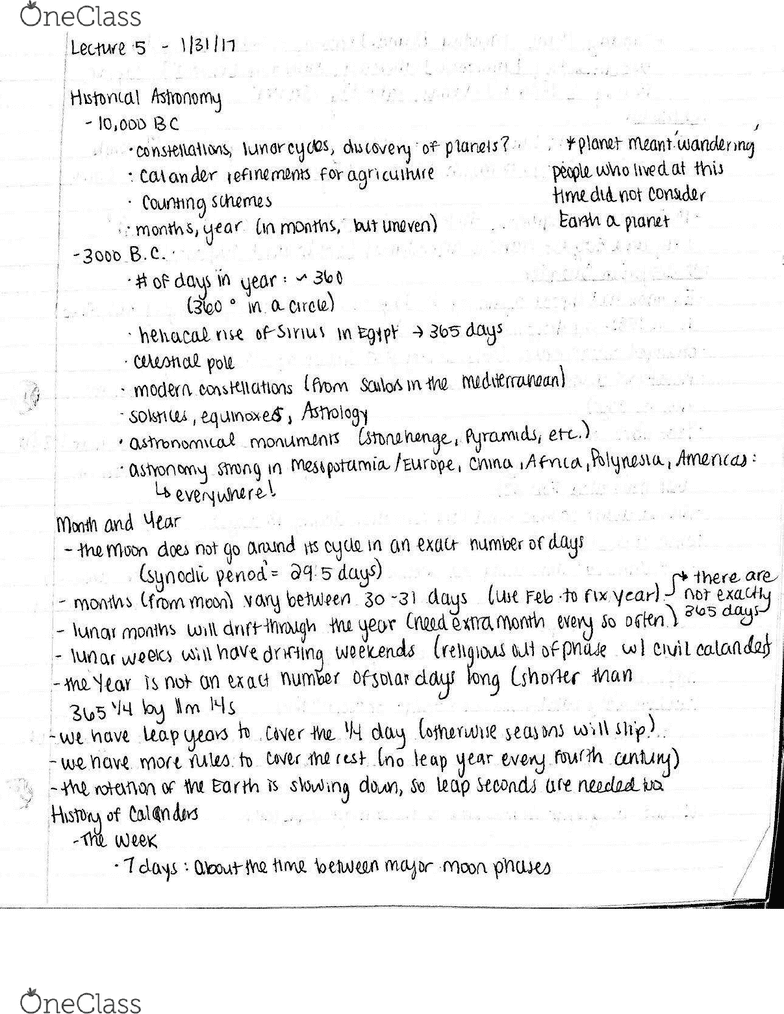 OneClass
Lecture 5 - 1/31/17
Historical Astronomy
- 10,000 BC
· constellations, lunar cycles, discovery of planets?
· calander refinements for agriculture
· counting schemes
· months, year (in months, but uneven)
* planet meant 'wandering'
people who lived at this
time did not consider
Earth a planet
- 3000 B.C.
· # of days in year: ~ 360
(360° in a circle)
· heliacal rise of Sirius in Egypt → 365 days
· celestial pole
· modern constellations (from sailors in the mediterranean)
· solstices, equinoxes, Astrology
· astronomical monuments (stonehenge, Pyramids, etc.)
· astronomy strong in Mesopotamia/Europe, China, Africa, Polynesia, Americas:
↳ everywhere!
Month and Year
- the moon does not go around its cycle in an exact number of days
(synodic period = 29.5 days)
- months (from moon) vary between 30-31 days (use Feb. to fix year)
→ there are
not exactly
365 days
- lunar months will drift through the year (need extra month every so often)
- lunar weeks will have drifting weekends (religious out of phase w/ civil calander)
- the Year is not an exact number of solar days long (shorter than
365 1/4 by 11m 14s
- we have leap years to cover the 1/4 day (otherwise seasons will slip)
- we have more rules to cover the rest (no leap year every fourth century)
- the rotation of the Earth is slowing down, so leap seconds are needed
History of Calanders
- The Week
· 7 days: about the time between major moon phases
OneClass